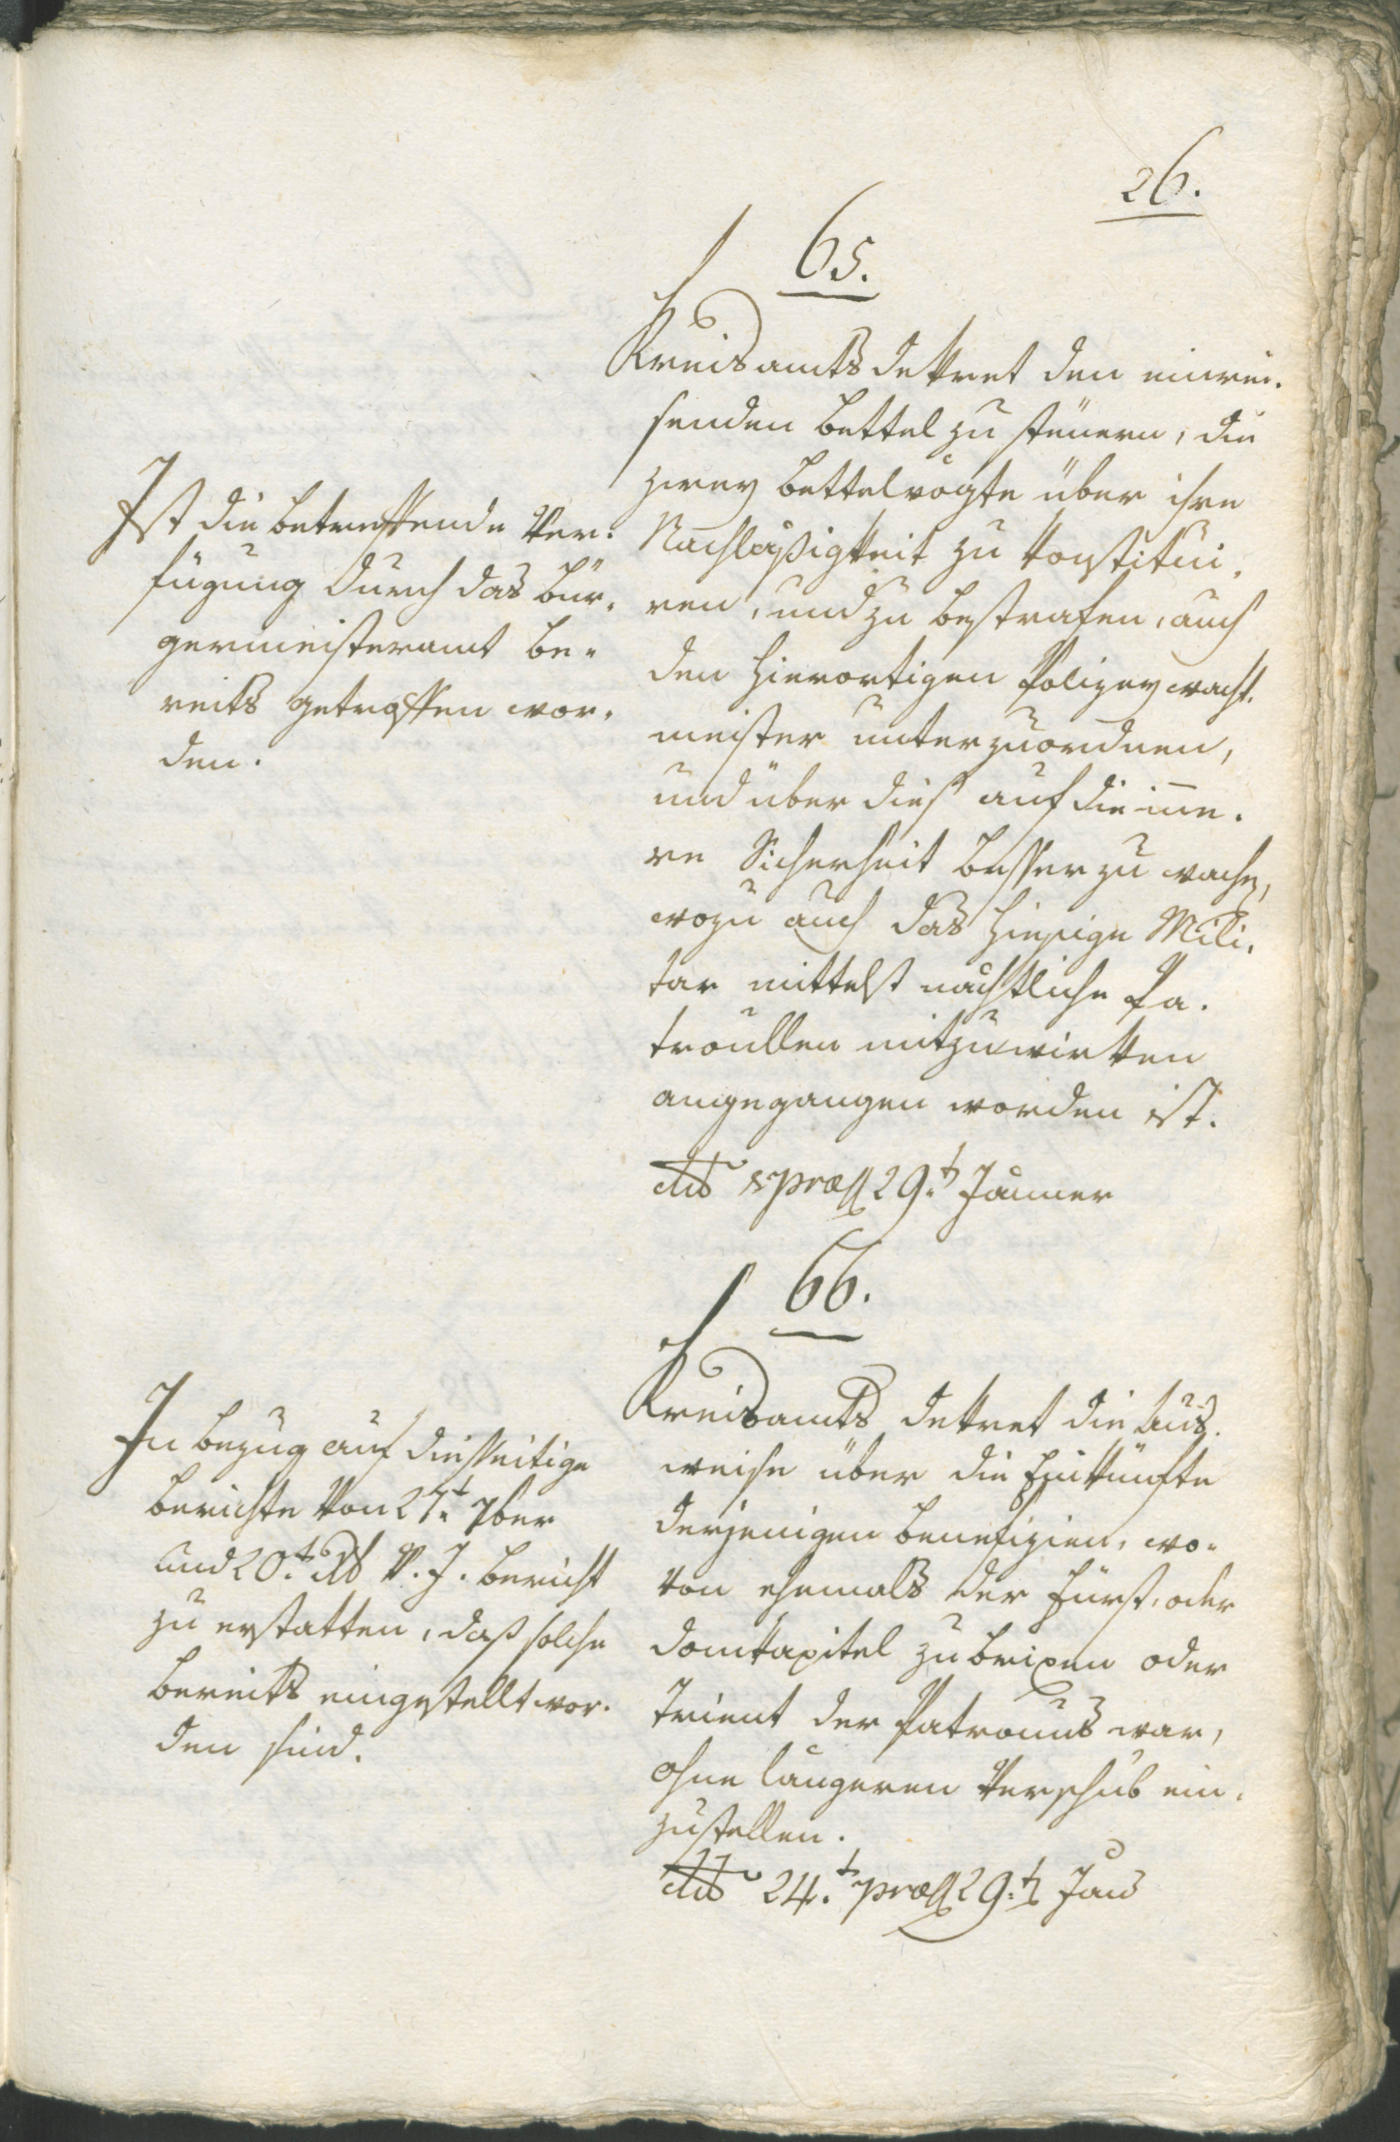 26.
65.
Kreisamtsdekret den einrei-
senden Bettel zu steüern, die
zwey Bettelvögte über ihre
Nachläßigkeit zu konstitui-
ren, und zu bestrafen, auch
den hierortigen Polizeywacht-
meister unterzuordnen,
und über dieß auf die inne-
re Sicherheit besser zu wachen,
wozu auch das hiesige Mili-
tar mittelst nächtliche Pa-
troullen mitzuwirken
angegangen worden ist.
dto & præs 29.t Jänner
Ist die betreffende Ver-
fügung durch das Bür-
germeisteramt be-
reits getroffen wor-
den.
66.
Kreisamts dekret die Aus-
weise über die Einkünfte
derjenigen Benefizien, wo-
von ehemals der Fürst, oder
Domkapitel zu Brixen oder
Trient der Patronus war,
ohne längeren Verschub ein-
zustellen.
dto 24.t præs 29.t Jan
In Bezug auf diesseitige
Berichte von 27.t 7ber
und 20.t v. J. Bericht
zu erstatten, daß solche
bereits eingestellt wor-
den sind.